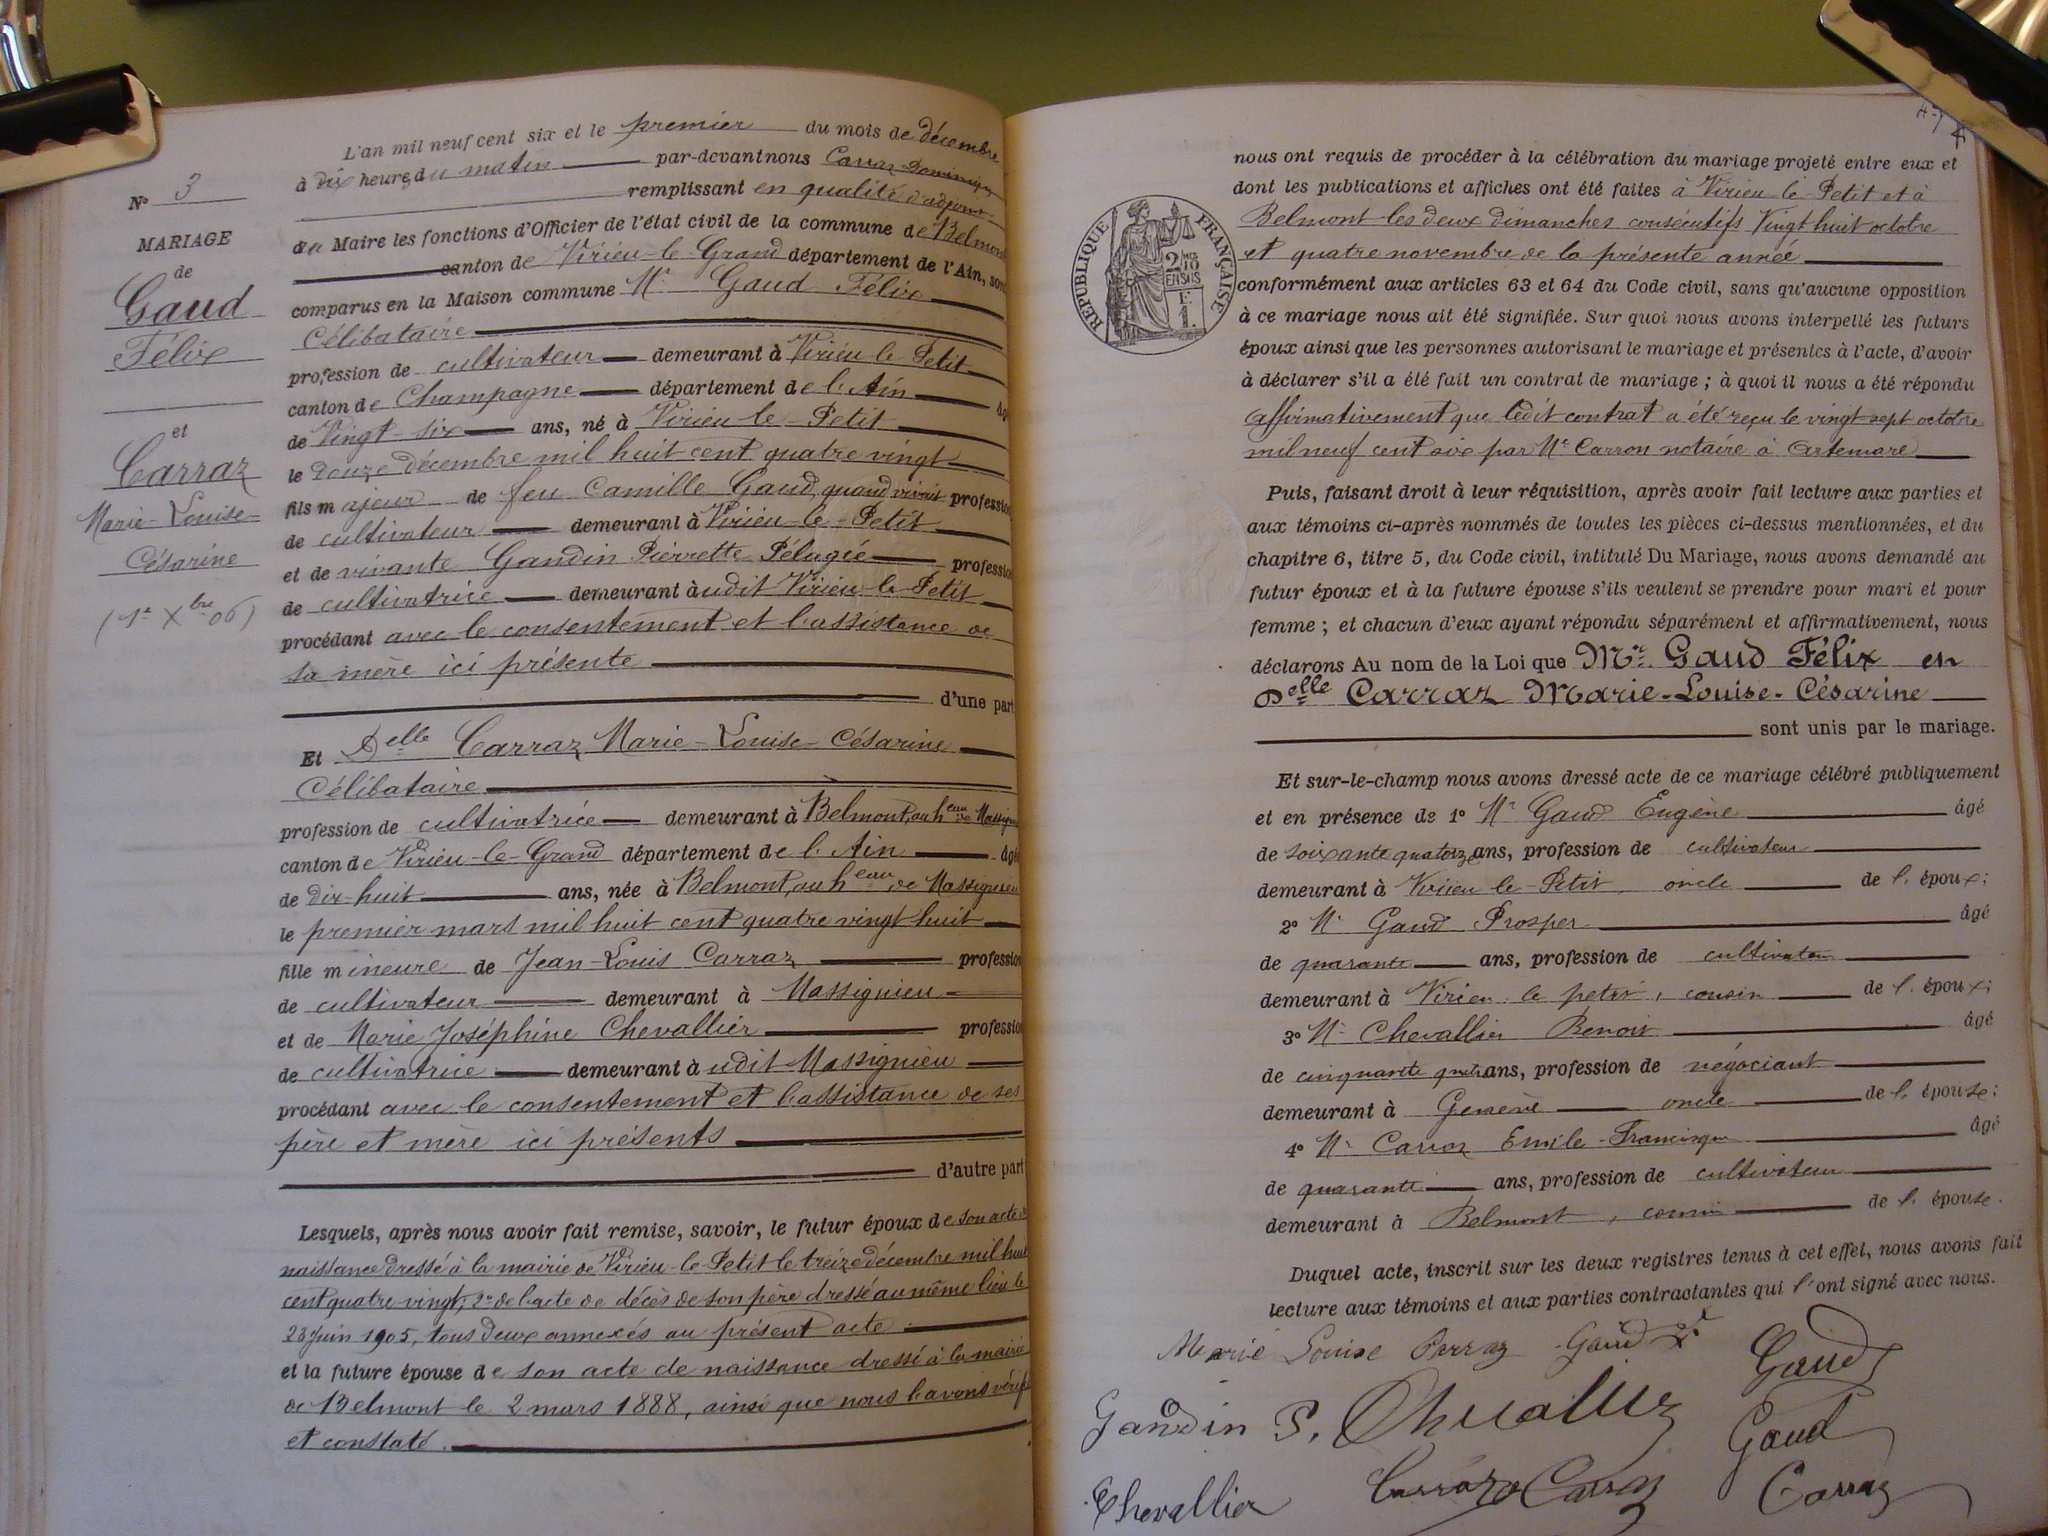 L'an mil neuf cent six et le premier du mois de décembre
à dix heures du matin par-devant nous Carraz Dominique
remplissant en qualité d'adjoint
au Maire les fonctions d'Officier de l'état civil de la commune de Belmont
canton de Virieu-le-Grand département de l'Ain, sont
comparus en la Maison commune Mr Gaud Félix
Célibataire
profession de cultivateur demeurant à Virieu-le-Petit
canton de Champagne département de l'Ain âgé
de Vingt-six ans, né à Virieu-le-Petit
le douze décembre mil huit cent quatre vingt
fils majeur de feu Camille Gaud, quand vivait profession
de cultivateur demeurant à Virieu-le-Petit
et de vivante Gandin Pierrette Pélagie profession
de cultivatrice demeurant audit Virieu-le-Petit
procédant avec le consentement et l'assistance de
sa mère ici présente
d'une part
Et Delle Carraz Marie-Louise-Césarine
Célibataire
profession de cultivatrice demeurant à Belmont, au heau de Massignieu
canton de Virieu-le-Grand département de l'Ain âgée
de dix-huit ans, née à Belmont, au heau de Massignieu
le premier mars mil huit cent quatre vingt huit
fille mineure de Jean-Louis Carraz profession
de cultivateur demeurant à Massignieu
et de Marie Joséphine Chevallier profession
de cultivatrice demeurant audit Massignieu
procédant avec le consentement et l'assistance de ses
père et mère ici présents
d'autre part
Lesquels, après nous avoir fait remise, savoir, le futur époux de son acte de
naissance dressé à la mairie de Virieu-le-Petit le treize décembre mil huit
cent quatre vingt; 2° de l'acte de décès de son père dressé au même lieu le
28 Juin 1905, tous deux annexés au présent acte
et la future épouse de son acte de naissance dressé à la mairie
de Belmont le 2 mars 1888, ainsi que nous l'avons vérifié
et constaté.
N° 3
MARIAGE
de
Gaud
Félix
et
Carraz
Marie-Louise-
Césarine
(1er Xbre 06)
47
4
RÉPUBLIQUE FRANÇAISE
2/10
EN SUS
nous ont requis de procéder à la célébration du mariage projeté entre eux et
dont les publications et affiches ont été faites à Virieu-le-Petit et à
Belmont les deux dimanches consécutifs Vingt huit octobre
et quatre novembre de la présente année
conformément aux articles 63 et 64 du Code civil, sans qu'aucune opposition
à ce mariage nous ait été signifiée. Sur quoi nous avons interpellé les futurs
époux ainsi que les personnes autorisant le mariage et présentes à l'acte, d'avoir
à déclarer s'il a été fait un contrat de mariage ; à quoi il nous a été répondu
affirmativement que ledit contrat a été reçu le vingt sept octobre
mil neuf cent six par Me Carron notaire à Artemare
Puis, faisant droit à leur réquisition, après avoir fait lecture aux parties et
aux témoins ci-après nommés de toutes les pièces ci-dessus mentionnées, et du
chapitre 6, titre 5, du Code civil, intitulé Du Mariage, nous avons demandé au
futur époux et à la future épouse s'ils veulent se prendre pour mari et pour
femme ; et chacun d'eux ayant répondu séparément et affirmativement, nous
déclarons Au nom de la Loi que Mr Gaud Félix en
Delle Carraz Marie-Louise-Césarine
sont unis par le mariage.
Et sur-le-champ nous avons dressé acte de ce mariage célébré publiquement
et en présence de 1° Mr Gaud Eugène âgé
de soixante quatorze ans, profession de cultivateur
demeurant à Virieu-le-Petit, oncle de l'époux;
2° Mr Gaud Prosper âgé
de quarante ans, profession de cultivateur
demeurant à Virieu le petit, cousin de l'époux;
3° Mr Chevallier Benoit âgé
de cinquante quatre ans, profession de négociant
demeurant à Genève oncle de l'épouse;
4° Mr Carraz Emile-Francisque âgé
de quarante ans, profession de cultivateur
demeurant à Belmont, cousin de l'épouse.
Duquel acte, inscrit sur les deux registres tenus à cet effet, nous avons fait
lecture aux témoins et aux parties contractantes qui l'ont signé avec nous.
Marie Louise Carraz Gaud Gaud
Gandin P. Chevallier Gaud
Chevallier Carraz Carraz Carraz